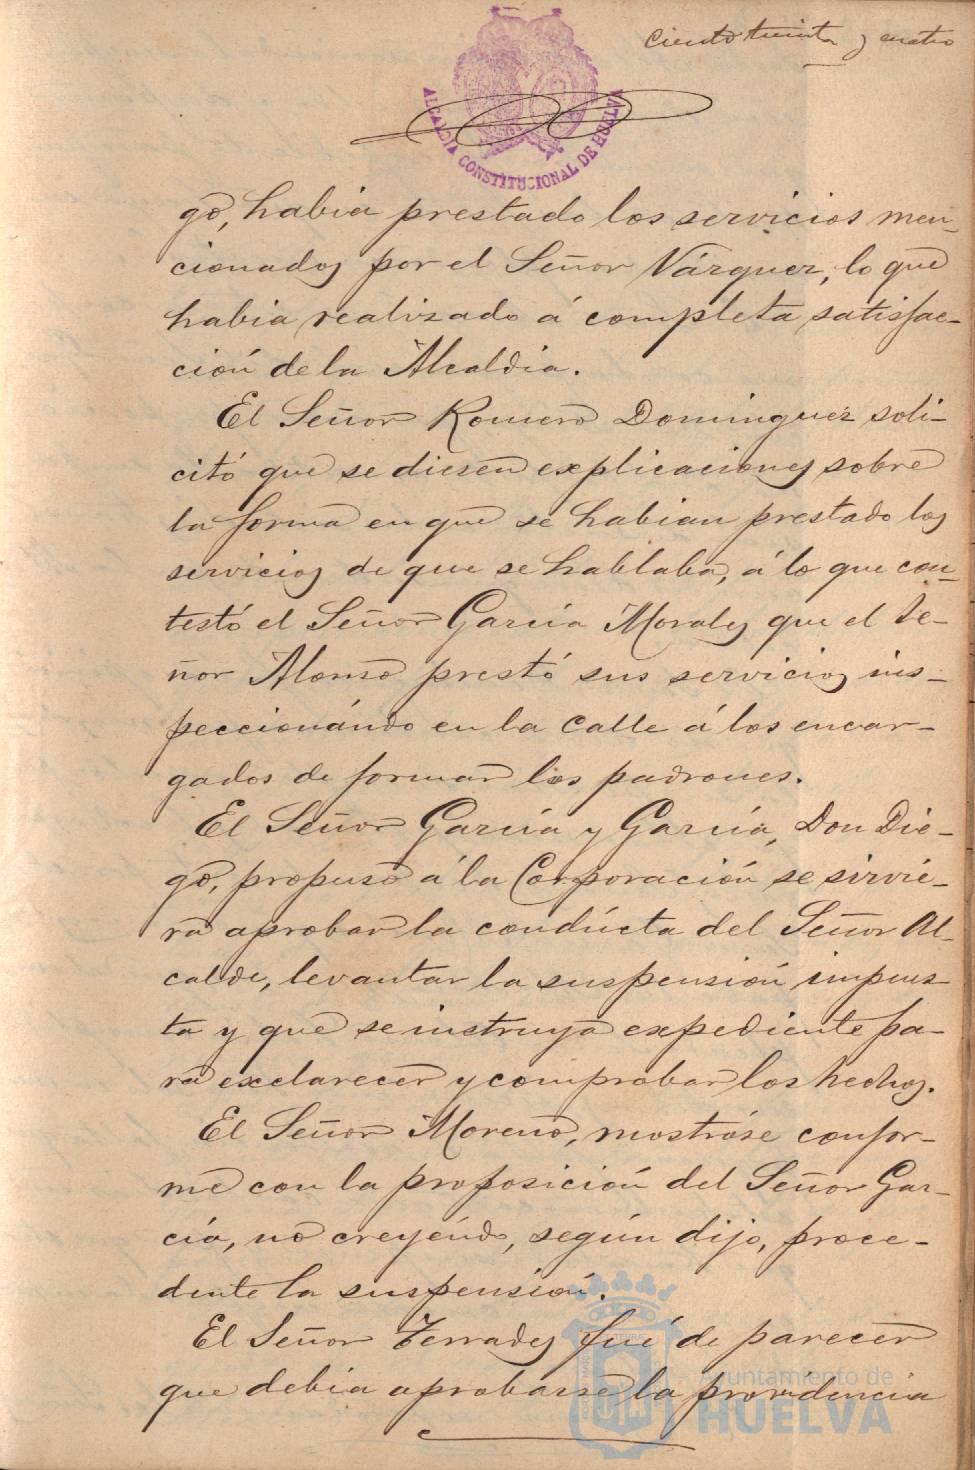 Ciento treinta y cuatro
ALCALDIA CONSTITUCIONAL DE HUELVA
go, habia prestado los servicios men-
cionados por el Señor Vázquez, lo que
habia realizado á completa satisfac-
ción de la Alcaldia.
El Señor Romero Dominguez soli-
citó que se diesen explicaciones sobre
la forma en que se habian prestado los
servicios de que se hablaba, á lo que con-
testó el Señor García Morales que el Se-
ñor Alonso prestó sus servicios ins-
peccionándo en la calle á los encar-
gados de formar los padrones.
El Señor García y García, Don Die-
go, propuso á la Corporación se sirvie-
ra aprobar la condúcta del Señor Al-
calde, levantar la suspensión impues
ta y que se instruya expediente pa-
ra exclarecer y comprobar los hechos.
El Señor Moreno, mostróse confor-
me con la proposición del Señor Gar-
cía, no creyéndo, según dijo, proce-
dente la suspensión.
El Señor Terrades fué de parecer
que debia aprobarse la providencia
Ayuntamiento de
HUELVA